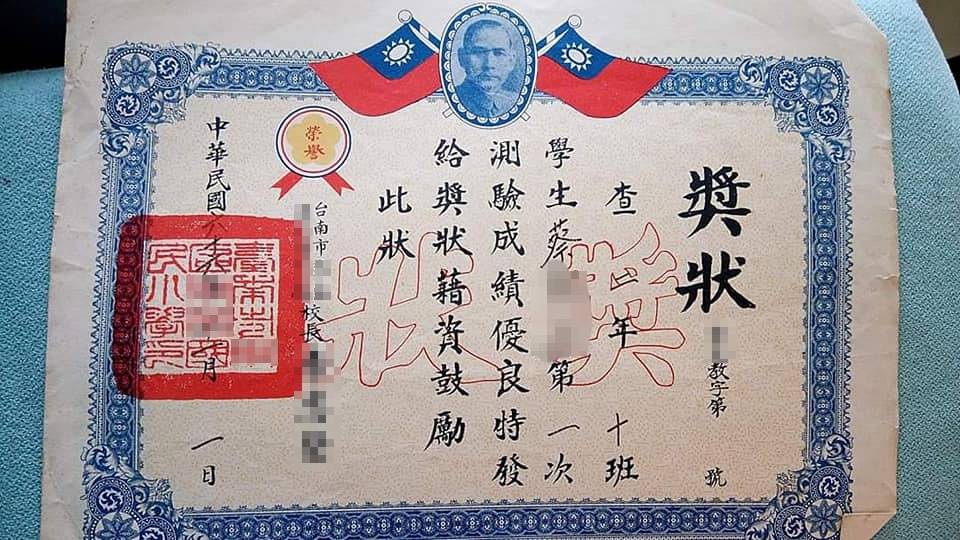 獎狀
教字第 號
查 二年十班
學生蔡 第一次
測驗成績優良特發
給獎狀藉資鼓勵
此狀
獎狀
榮譽
台南市
校長
中華民國六十 月一日
臺南市
民小學